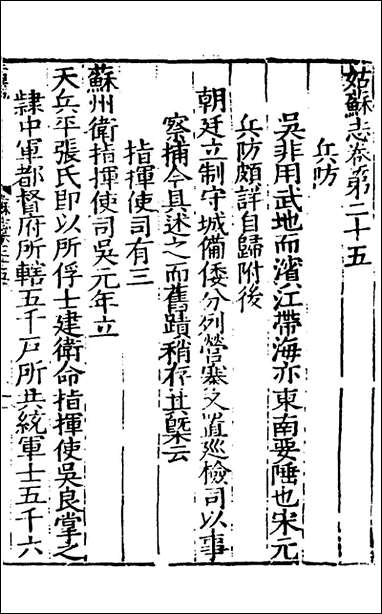 姑蘇志卷第二十五
兵防
吳非用武地而濱江帶海亦東南要陲也宋元
兵防頗詳自歸附後
朝廷立制守城備倭分列營寨又置巡檢司以事
察捕今具述之而舊蹟稍存其槩云
指揮使司有三
蘇州衛指揮使司吳元年立
天兵平張氏即以所俘士建衛命指揮使吳良掌之
隸中軍都督府所轄五千戶所共統軍士五千六